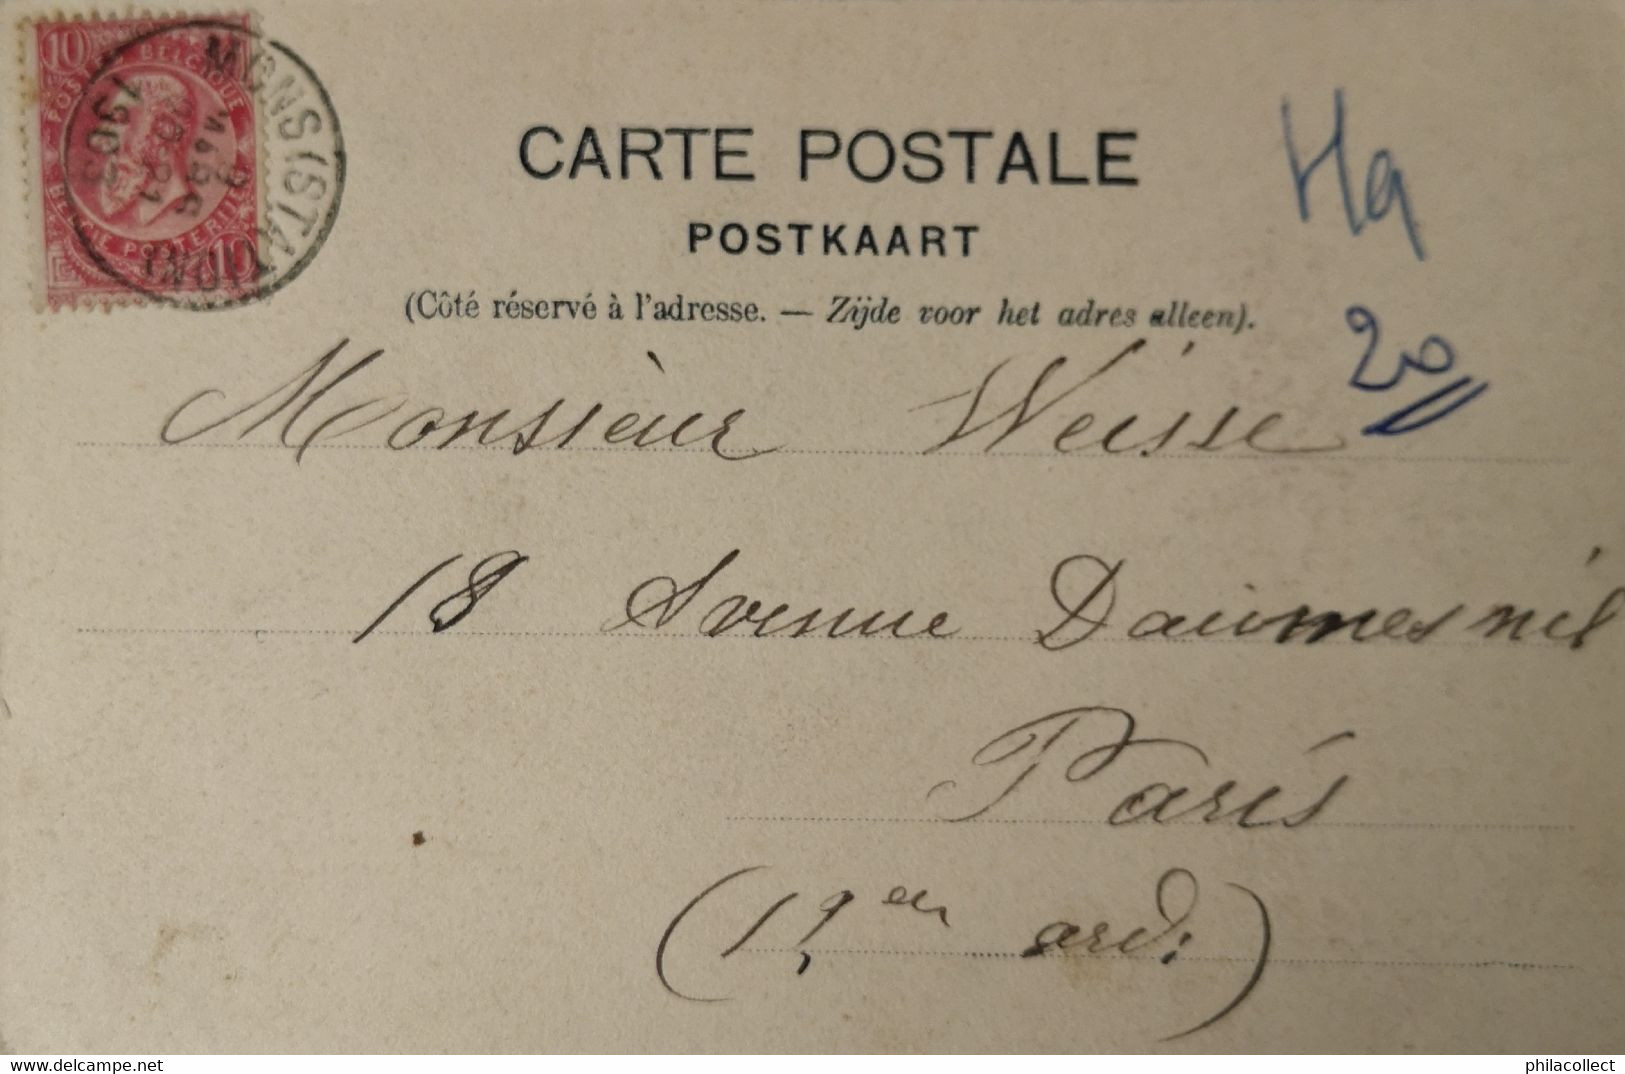 10 10
POSTES BELGIQUE
MONS (STATION)
1903
CARTE POSTALE
POSTKAART
(Côté réservé à l'adresse. — Zijde voor het adres alleen).
Ha
20
Monsieur Weisse
18 Avenue Daumesnil
Paris
(12em ard:)
philacollect